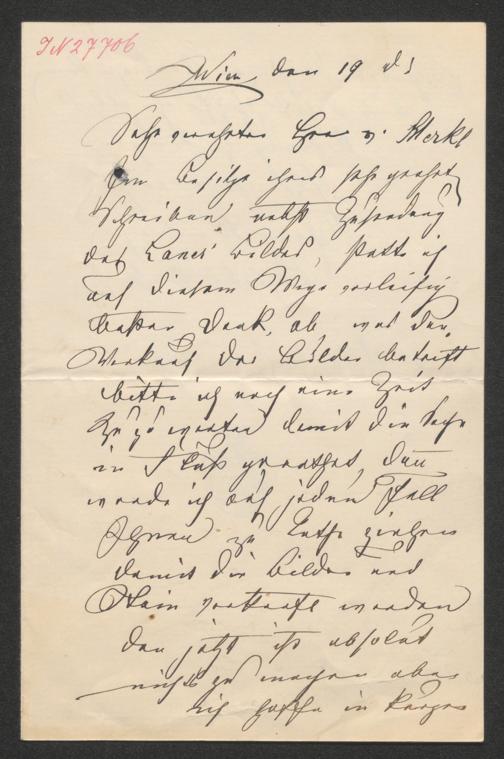 IN 27706
Wien den 19 d
Sehr verehrter Herr v. Sterkl
Im Besitze ihres sehr geehrt
Schreiben nebst Zusendung
des Bildes, statte ich
auf diesem Wege vorleifig
besten Dank, ob was den
Verkauf des Bildes betrifft
bitte ich noch eine Zeit
zu warten damit die Sache
in Fluß gerathet, dan
werde ich auf jeden Fall
zu Rathe ziehen
damit die Bilder und
Stein verkauft werden
den jetzt ist absolut
nichts zu machen aber
ich hoffe in kurzer